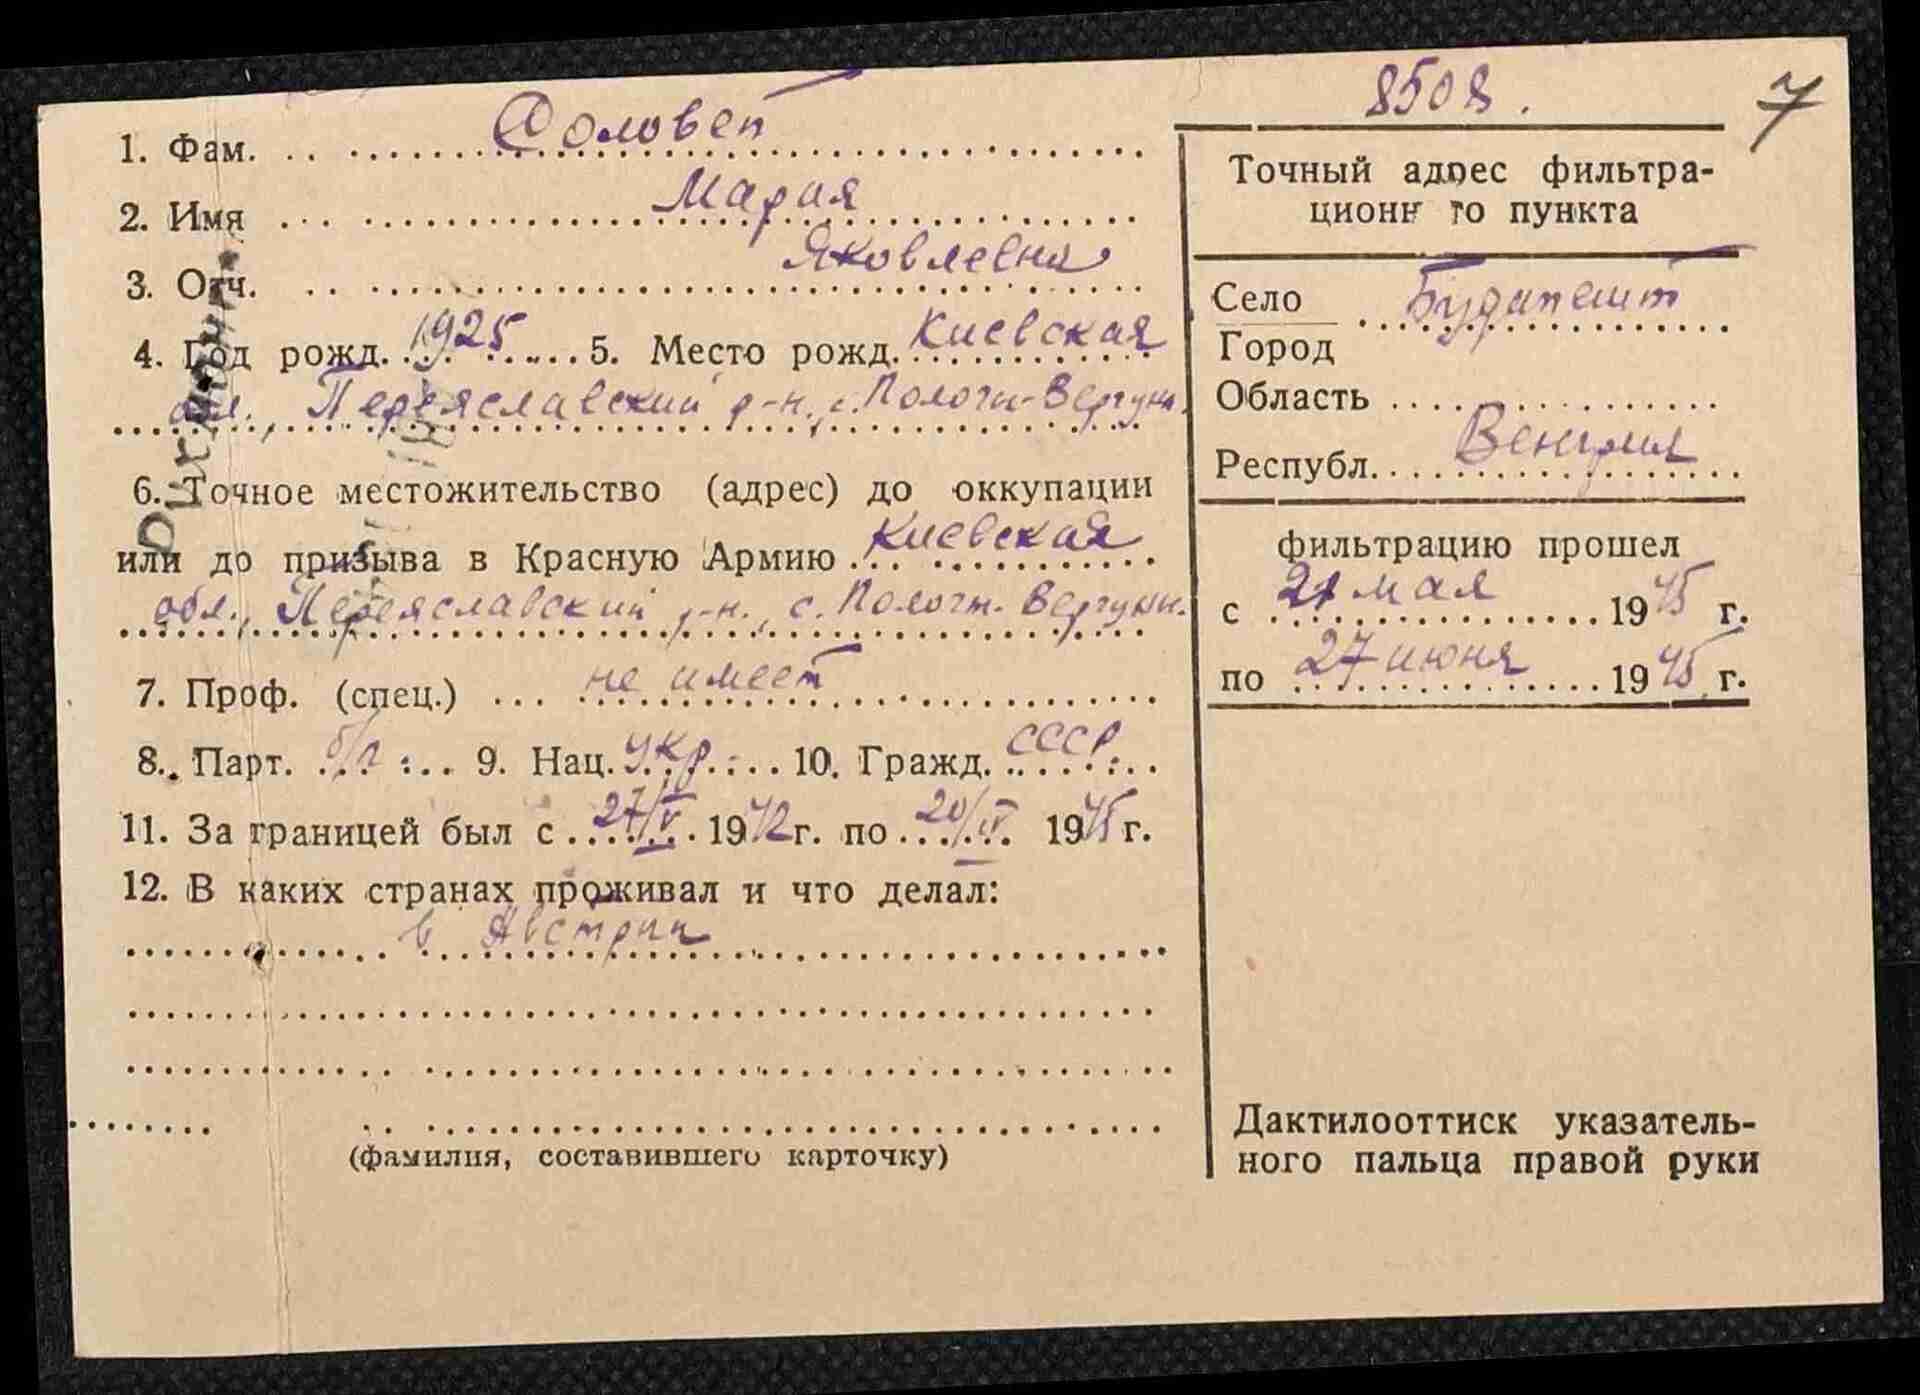 8508.
7
1. Фам. Соловей
2. Имя Мария
3. Отч. Яковлевна
4. Год рожд. 1925 5. Место рожд. Киевская
обл., Переяславский р-н., с. Пологи-Вергуны
6. Точное местожительство (адрес) до оккупации
или до призыва в Красную Армию Киевская
обл., Переяславский р-н., с. Вергун.
7. Проф. (спец.) не имеет
8. Парт. б/п 9. Нац. укр. 10. Гражд. СССР
11. За границей был с 27/V 1942 г. по 20/IV 1945 г.
12. В каких странах проживал и что делал:
в Австрии
(фамилия, составившего карточку)
Точный адрес фильтра-
ционного пункта
Село Будапешт
Город
Область
Республ. Венгрия
фильтрацию прошел
с 21 мая 1945 г.
по 27 июня 1945 г.
Дактилооттиск указатель-
ного пальца правой руки